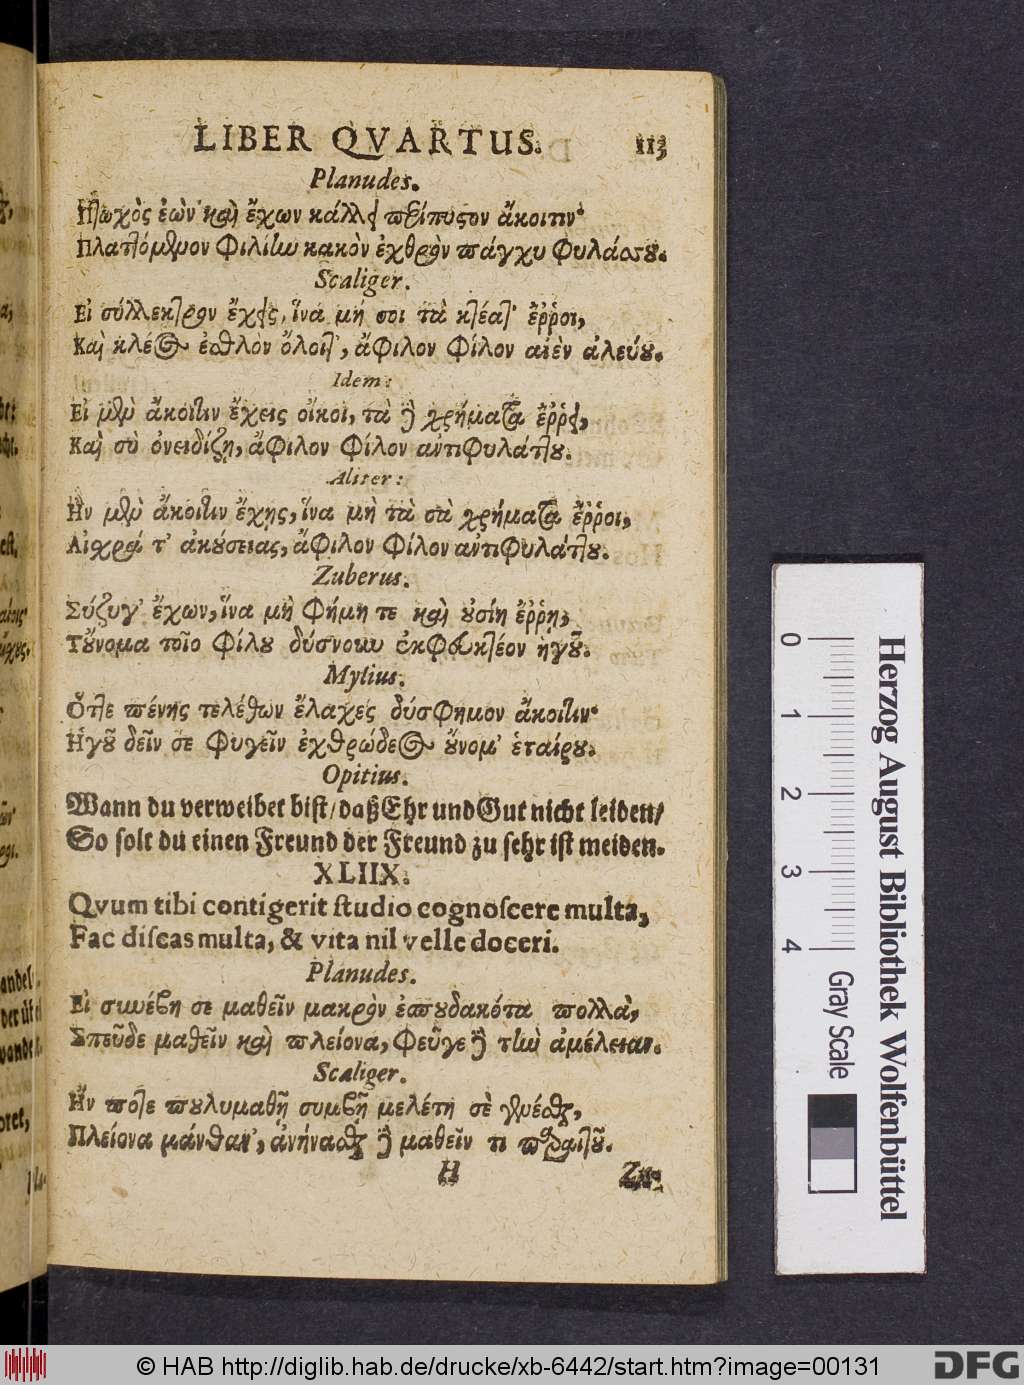 LIBER QVARTUS. 113
Planudes.
Πτωχὸς ἐὼν καὶ ἔχων κάλλει περίπυστον ἄκοιτιν·
Πλαττόμενον φιλίην κακὸν ἐχθρὸν πάγχυ φυλάσσου.
Scaliger.
Εἰ σύλλεκτρον ἔχεις, ἵνα μή σοι τὰ κτέατ' ἔῤῥοι,
Καὶ κλέος ἐσθλὸν ὄλοιτ', ἄφιλον φίλον αἰὲν ἀλεύου.
Idem:
Εἰ μὲν ἄκοιτιν ἔχεις οἴκοι, τὰ δὲ χρήματα ἔῤῥει,
Καὶ σὺ ὀνειδίζῃ, ἄφιλον φίλον ἀντιφυλάττου.
Aliter:
Ἢν μὲν ἄκοιτιν ἔχῃς, ἵνα μὴ τὰ σὰ χρήματα ἔῤῥοι,
Αἰσχρά τ' ἀκούσειας, ἄφιλον φίλον ἀντιφυλάττου.
Zuberus.
Σύζυγ' ἔχων, ἵνα μὴ φήμη τε καὶ οὐσίη ἔῤῥῃ,
Τοὔνομα τοῖο φίλου δύσνουν ἐκφευκτέον ἡγοῦ.
Mylius.
Ὅττε πένης τελέθων ἔλαχες δύσφημον ἄκοιτιν·
Ἡγοῦ δεῖν σε φυγεῖν ἐχθρώδεος οὔνομ' ἑταίρου.
Opitius.
Wann du verweibet bist/daß Ehr und Gut nicht leiden/
So solt du einen Freund der Freund zu sehr ist meiden.
XLIIX.
Qvum tibi contigerit studio cognoscere multa,
Fac discas multa, & vita nil velle doceri.
Planudes.
Εἰ συνέβη σε μαθεῖν μακρὸν ἐσπουδακότα πολλὰ,
Σπεῦδε μαθεῖν καὶ πλείονα, φεῦγε δὲ τὴν ἀμέλειαν.
Scaliger.
Ἤν ποτε πουλυμαθῆ συμβῇ μελέτῃ σὲ γενέσθαι,
Πλείονα μάνθαν', ἀνήνασθαι δὲ μαθεῖν τι παραιτοῦ.
H Zu-
0 1 2 3 4
Herzog August Bibliothek Wolfenbüttel
Gray Scale
© HAB http://diglib.hab.de/drucke/xb-6442/start.htm?image=00131
DFG